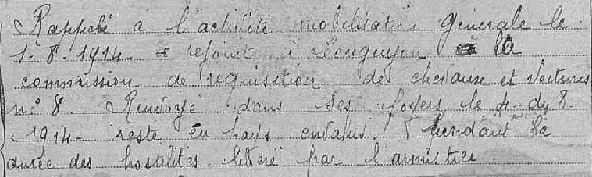 Rappelé à l'activité mobilisation générale le
1.8.1914 = rejoint à Longuyon la
commission de réquisition des chevaux et voitures
n° 8. Renvoyé dans ses foyers le 4 du 8
1914 resté en pays envahis pendant la
durée des hostilités. libéré par l'armistice